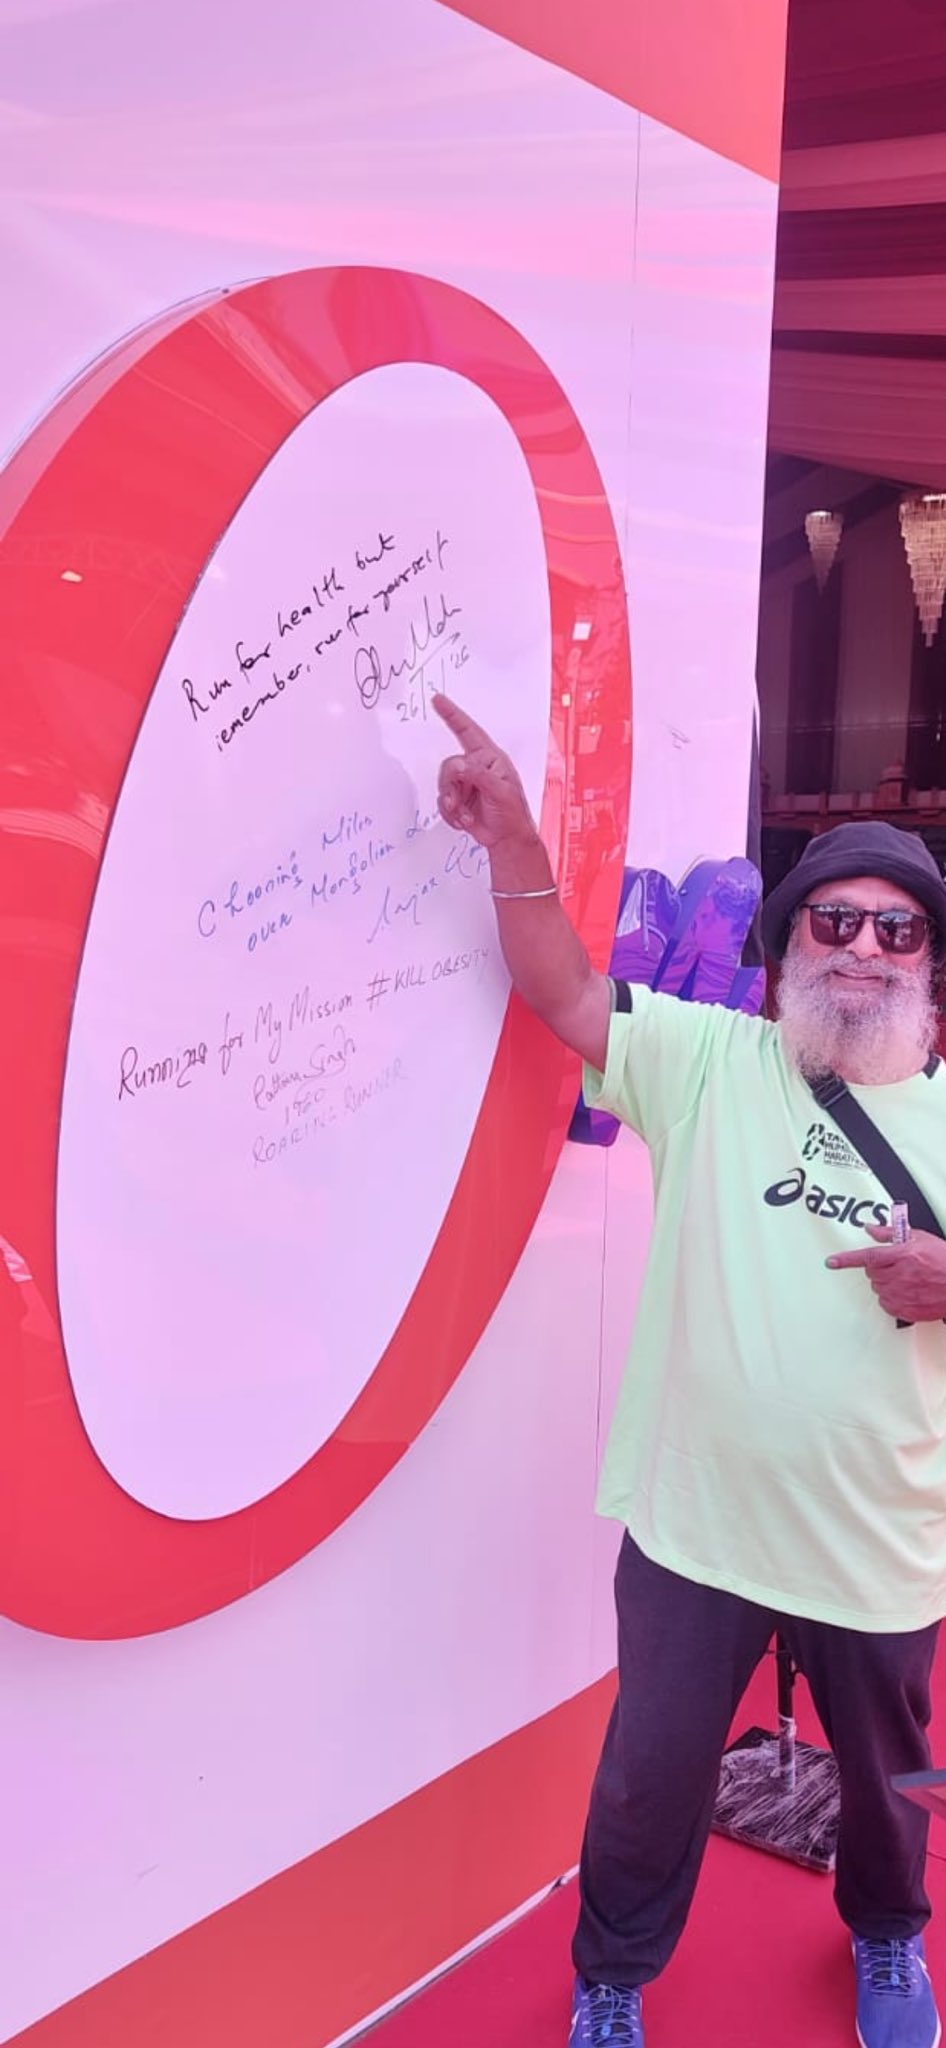 Run for health but
remember, run for yourself
26/3/'26
Choosing Miles
over Mongolian
Running for My Mission #KILL OBESITY
Singh
1960
ROARING RUNNER
TATA
MUMBAI
MARATHON
asics